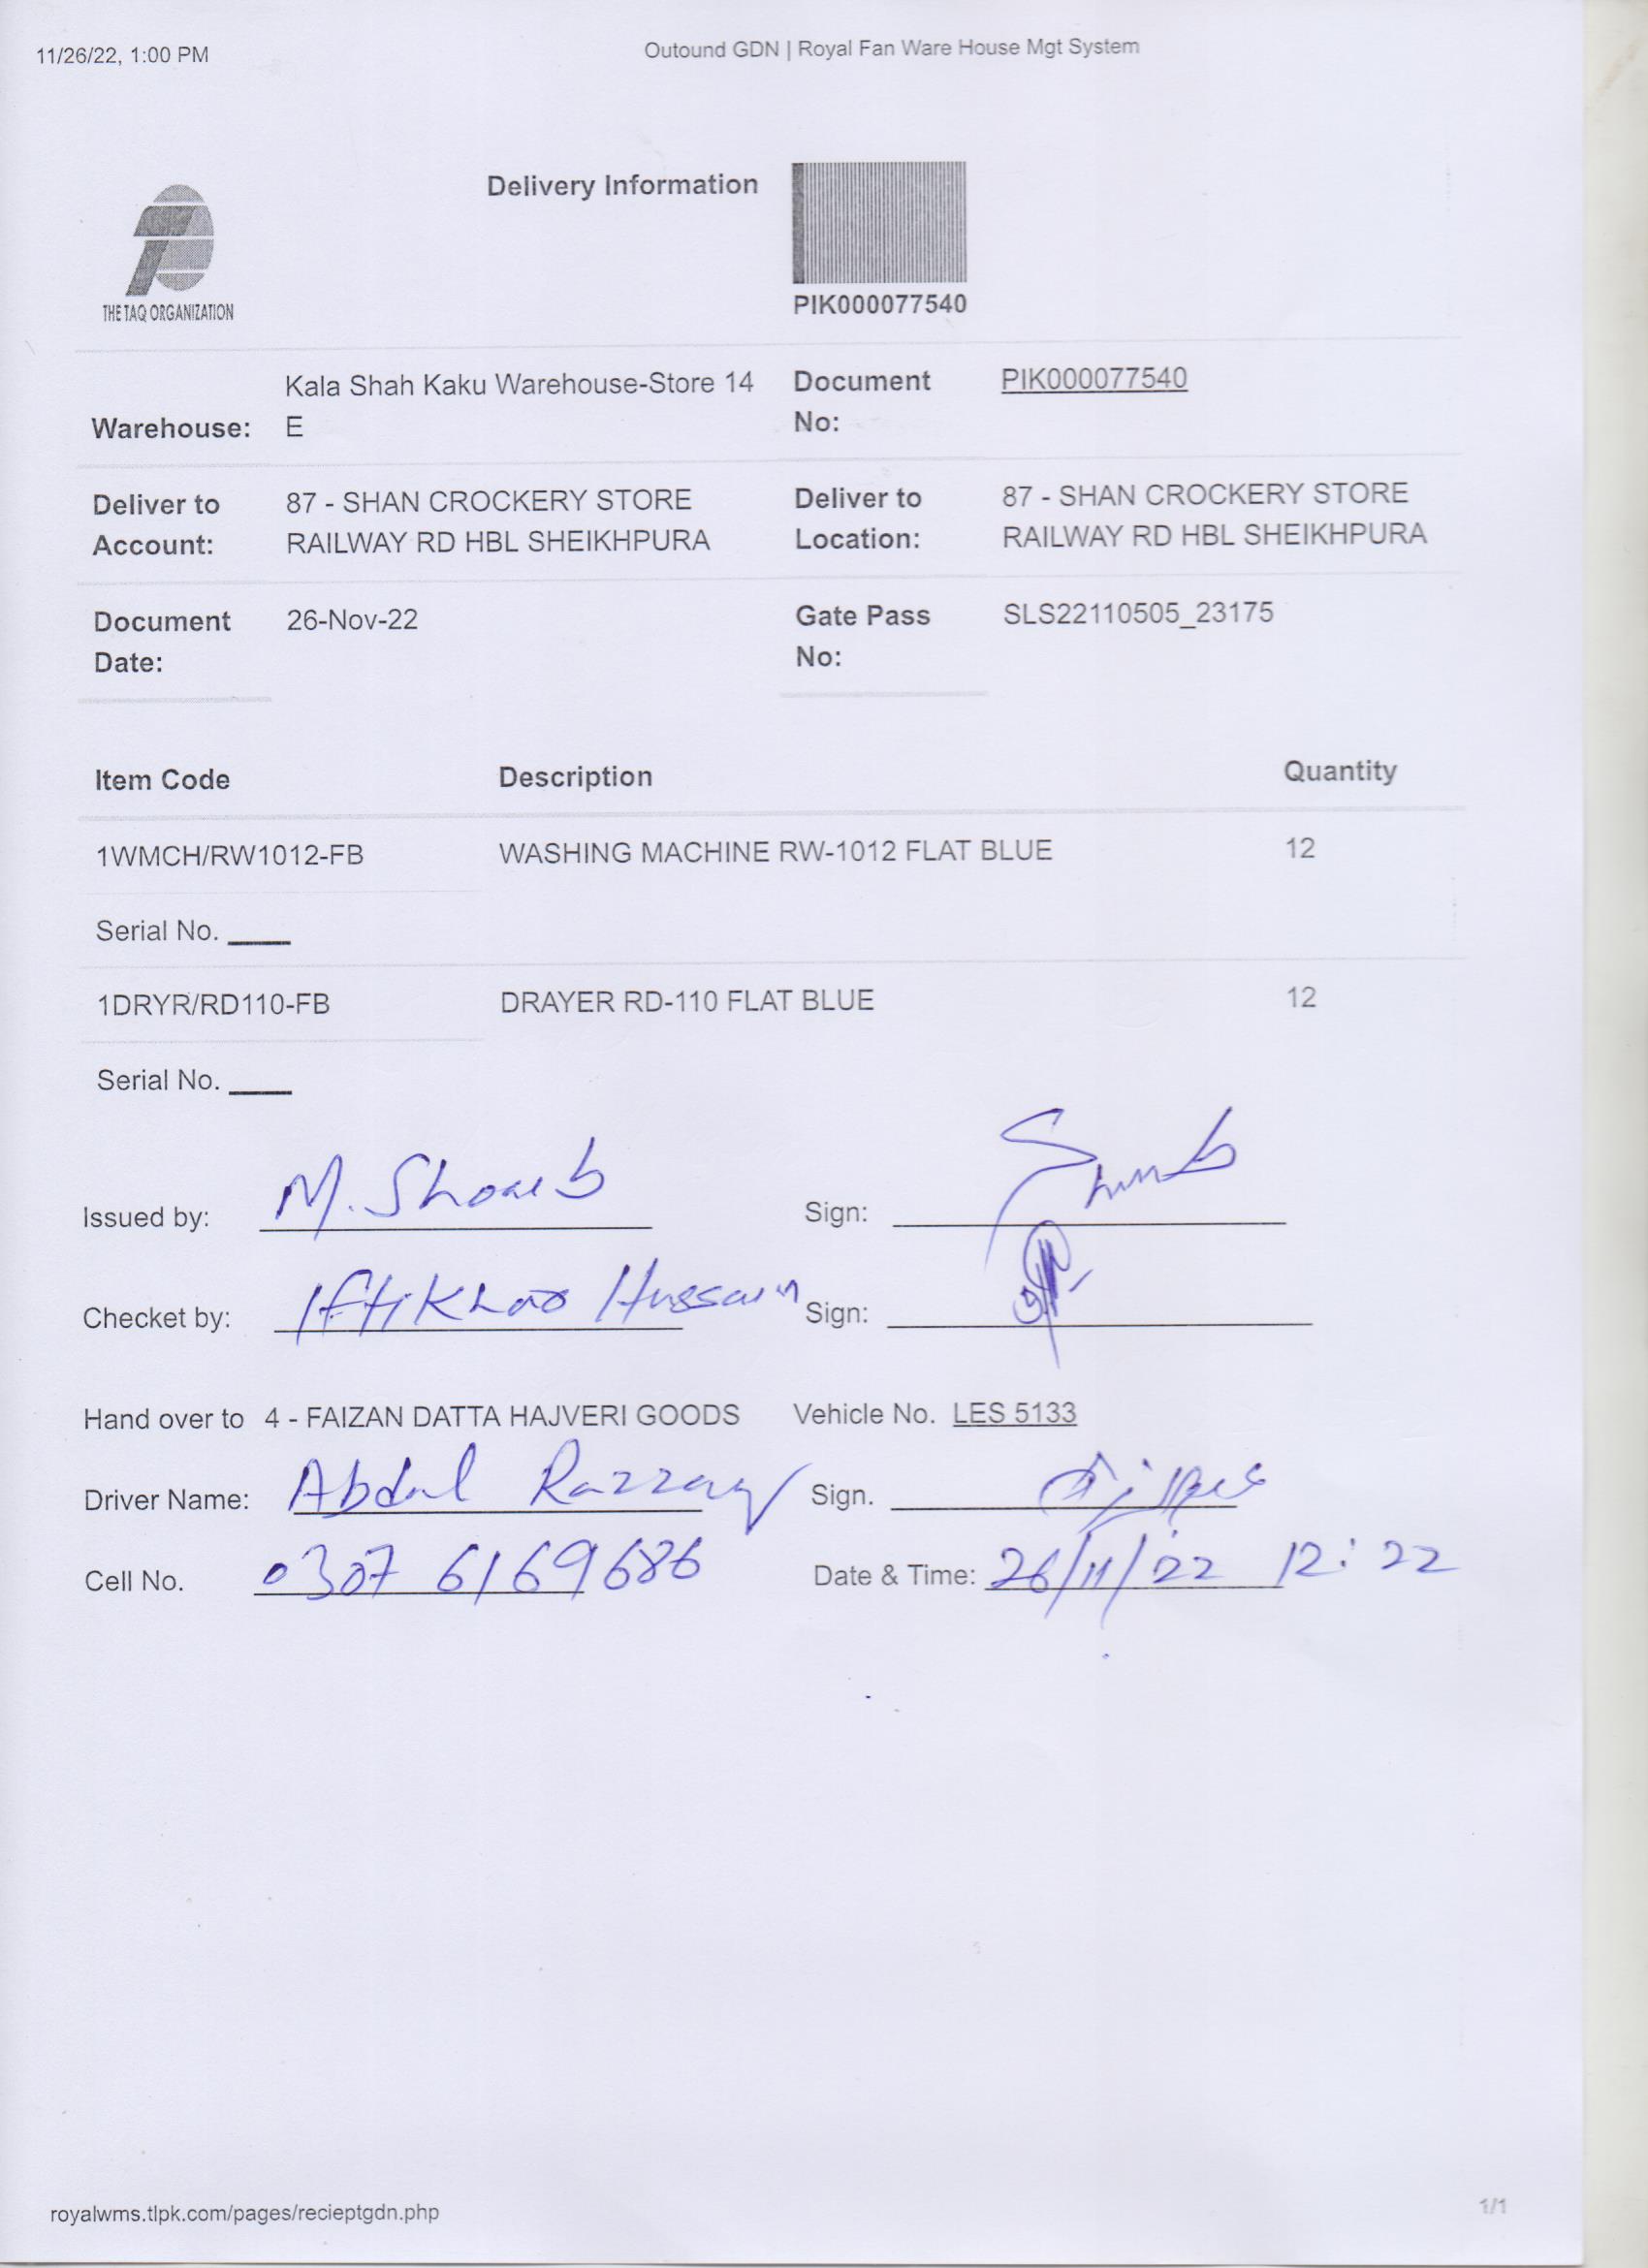 11/26/22, 1:00 PM
Outound GDN | Royal Fan Ware House Mgt System
Delivery Information
THE TAQ ORGANIZATION
PIK000077540
Warehouse: Kala Shah Kaku Warehouse-Store 14 E
Document No: PIK000077540
Deliver to Account: 87 - SHAN CROCKERY STORE RAILWAY RD HBL SHEIKHPURA
Deliver to Location: 87 - SHAN CROCKERY STORE RAILWAY RD HBL SHEIKHPURA
Document Date: 26-Nov-22
Gate Pass No: SLS22110505_23175
Item Code Description Quantity
1WMCH/RW1012-FB WASHING MACHINE RW-1012 FLAT BLUE 12
Serial No. ____
1DRYR/RD110-FB DRAYER RD-110 FLAT BLUE 12
Serial No. ____
Issued by: M. Shoaib Sign:
Checket by: Iftikhar Hussain Sign:
Hand over to 4 - FAIZAN DATTA HAJVERI GOODS Vehicle No. LES 5133
Driver Name: Abdul Razzaq Sign.
Cell No. 0307 6169686 Date & Time: 26/11/22 12:22
royalwms.tlpk.com/pages/recieptgdn.php
1/1